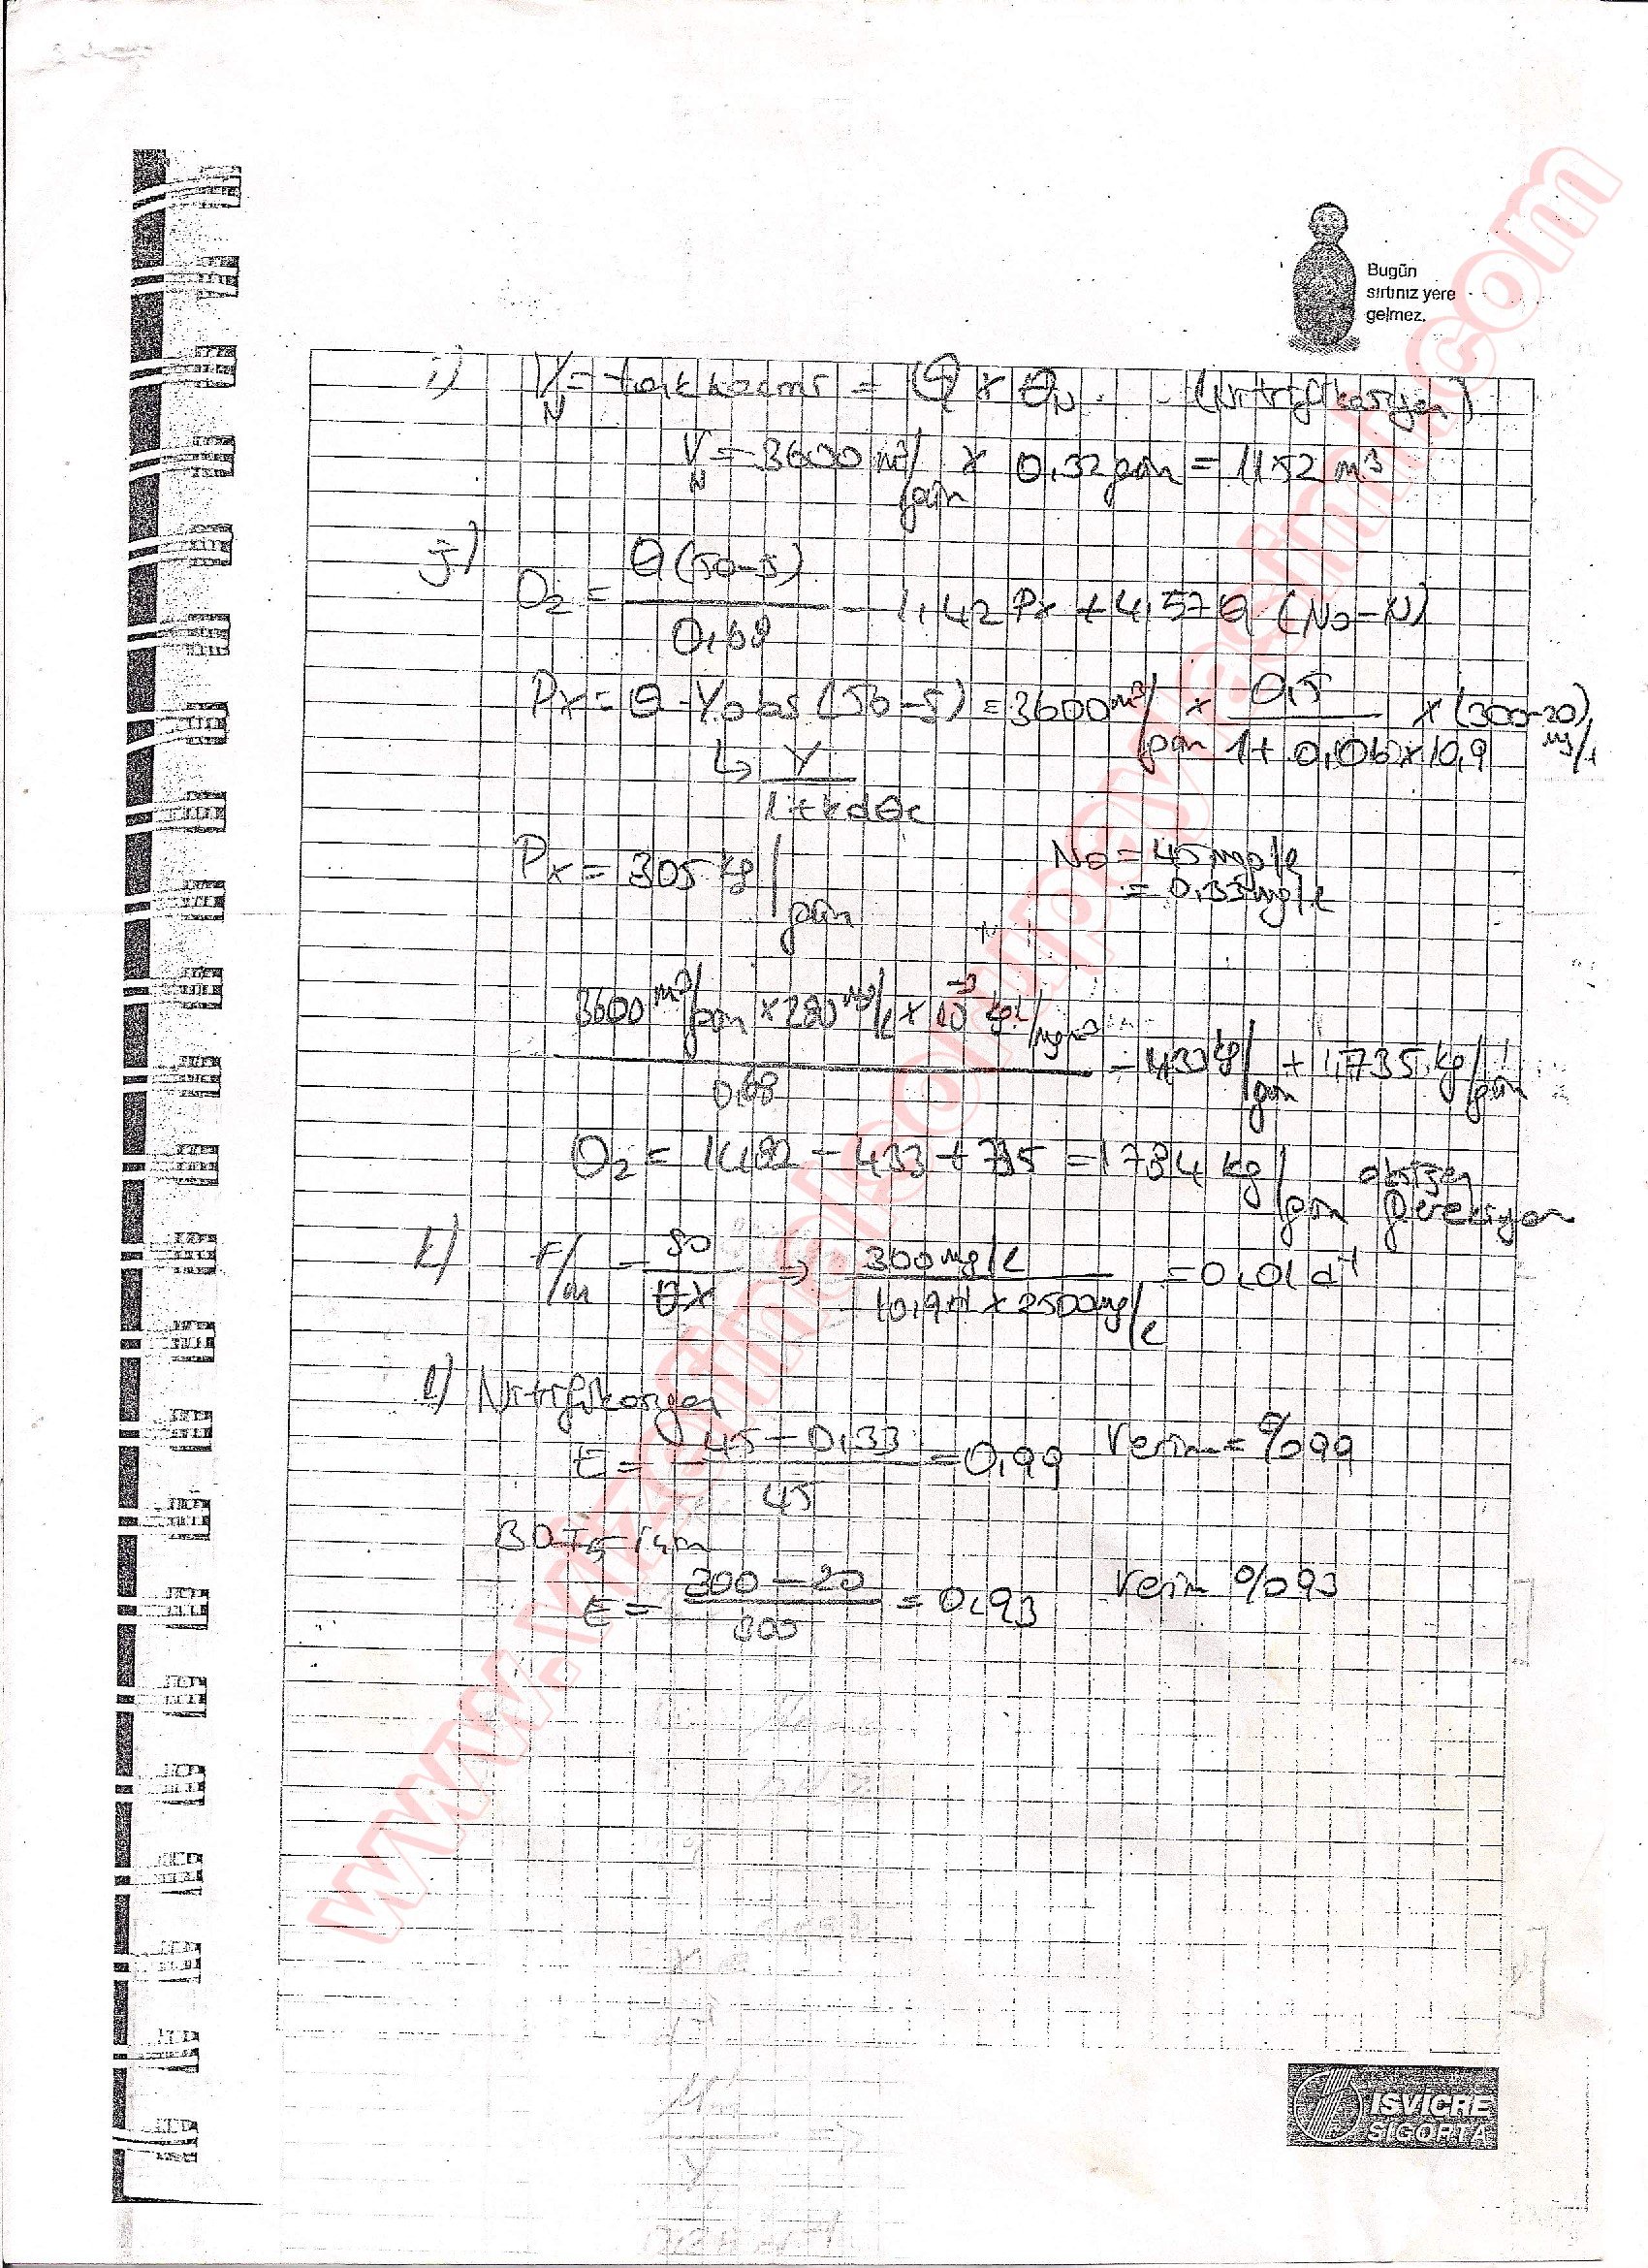 Bugün
sırtınız yere
gelmez.
i) V_N = tank hacmi = Q x θ_N . (Nitrifikasyon)
V_N = 3600 m³/gün x 0,32 gün = 1152 m³
j) O₂ = Q(S0-S) / 0,68 - 1,42 Px + 4,57 Q (No-N)
Px = Q . Yobs (S0-S) = 3600 m³/gün x 0,5 / 1+ 0,06 x 10,9 x (300-20) mg/l
↳ Y / 1+kdθc
Px = 305 kg/gün
No = 45 mg/l
= 0,33 mg/l
3600 m³/gün x 280 mg/l x 10⁻³ kg.l/mg.m³ / 0,68 - 433 kg/gün + 735 kg/gün
O₂ = 1482 - 433 + 735 = 1784 kg/gün oksijen
gerekiyor
k) F/M = S0 / θX → 300 mg/l / 10,9 d x 2500 mg/l = 0,01 d⁻¹
l) Nitrifikasyon
E = 45 - 0,33 / 45 = 0,99 Verim = %99
BOI₅ için
E = 300 - 20 / 300 = 0,93 Verim %93
www.vizefinalsorupaylasimi.com
ISVİCRE
SİGORTA